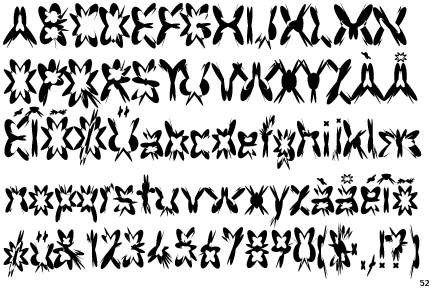 ABCDEFGHIJKLMN
OPQRSTUVWXYZÀÅ
ÉÎÕØÜabcdefghijklm
nopqrstuvwxyzàåéîõ
øü&1234567890($£.,!?)
52